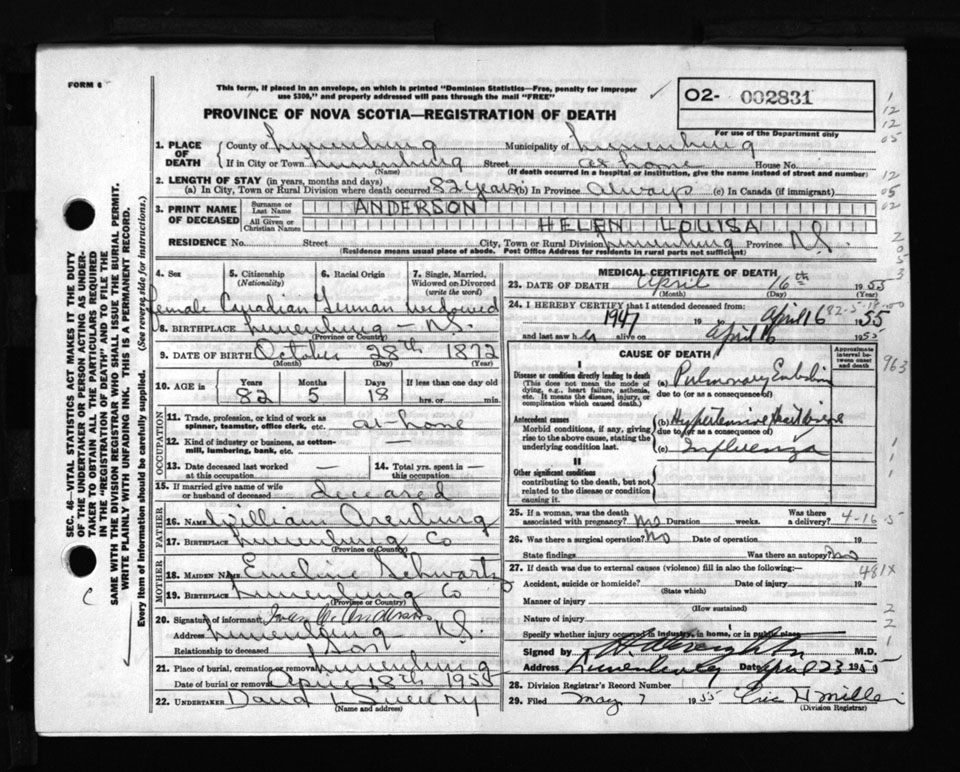 FORM 6
This form, if placed in an envelope, on which is printed "Dominion Statistics—Free, penalty for improper
use $300," and properly addressed will pass through the mail "FREE"
O2- 002831
PROVINCE OF NOVA SCOTIA—REGISTRATION OF DEATH
For use of the Department only
1. PLACE OF DEATH
County of Lunenburg Municipality of Lunenburg
If in City or Town Lunenburg Street at home House No.
(Name) (If death occurred in a hospital or institution, give the name instead of street and number)
2. LENGTH OF STAY (in years, months and days)
(a) In City, Town or Rural Division where death occurred 82 years (b) In Province always (c) In Canada (if immigrant)
3. PRINT NAME OF DECEASED
Surname or Last Name ANDERSON
All Given or Christian Names HELEN LOUISA
RESIDENCE No. Street City, Town or Rural Division Lunenburg Province N.S.
(Residence means usual place of abode. Post Office Address for residents in rural parts not sufficient)
4. Sex 5. Citizenship (Nationality) 6. Racial Origin 7. Single, Married, Widowed or Divorced (write the word)
Female Canadian German widowed
8. BIRTHPLACE Lunenburg - N.S.
(Province or Country)
9. DATE OF BIRTH October 28th 1872
(Month) (Day) (Year)
10. AGE in Years Months Days If less than one day old
82 5 18 hrs. or min.
OCCUPATION
11. Trade, profession, or kind of work as spinner, teamster, office clerk, etc. at-home
12. Kind of industry or business, as cotton-mill, lumbering, bank, etc. —
13. Date deceased last worked at this occupation — 14. Total yrs. spent in this occupation —
15. If married give name of wife or husband of deceased deceased
FATHER
16. NAME William Arenburg
17. BIRTHPLACE Lunenburg Co
(Province or Country)
MOTHER
18. MAIDEN NAME Emeline Schwartz
19. BIRTHPLACE Lunenburg Co
(Province or Country)
20. Signature of informant
Address Lunenburg N.S.
Relationship to deceased Son
21. Place of burial, cremation or removal Lunenburg
Date of burial or removal April 18th 1955
22. UNDERTAKER
(Name and address)
MEDICAL CERTIFICATE OF DEATH
23. DATE OF DEATH April 16th 1955
(Month) (Day) (Year)
24. I HEREBY CERTIFY that I attended deceased from: 82-5-18-00
1947 19 to April 16 1955
and last saw her alive on April 16 1955
CAUSE OF DEATH
Approximate interval between onset and death
963
I
Disease or condition directly leading to death
(This does not mean the mode of dying, e.g., heart failure, asthenia, etc. It means the disease, injury, or complication which caused death.)
(a) Pulmonary Embolism
due to (or as a consequence of)
Antecedent causes
Morbid conditions, if any, giving rise to the above cause, stating the underlying condition last.
(b) Hypertensive Heart Disease
due to (or as a consequence of)
(c) Influenza
II
Other significant conditions contributing to the death, but not related to the disease or condition causing it.
25. If a woman, was the death associated with pregnancy? No Duration weeks. Was there a delivery? 4-16-5
26. Was there a surgical operation? No Date of operation 19
State findings Was there an autopsy? No
27. If death was due to external causes (violence) fill in also the following:— 481X
Accident, suicide or homicide? Date of injury 19
(State which)
Manner of injury
(How sustained)
Nature of injury
Specify whether injury occurred in industry, in home, or in public place
Signed by M.D.
Address Lunenburg Date April 23 1955
28. Division Registrar's Record Number
29. Filed May 7 1955
(Division Registrar)
SEC. 46—VITAL STATISTICS ACT MAKES IT THE DUTY
OF THE UNDERTAKER OR PERSON ACTING AS UNDER-
TAKER TO OBTAIN ALL THE PARTICULARS REQUIRED
IN THE "REGISTRATION OF DEATH" AND TO FILE THE
SAME WITH THE DIVISION REGISTRAR WHO SHALL ISSUE THE BURIAL PERMIT.
WRITE PLAINLY WITH UNFADING INK. THIS IS A PERMANENT RECORD.
Every item of information should be carefully supplied. (See reverse side for instructions.)